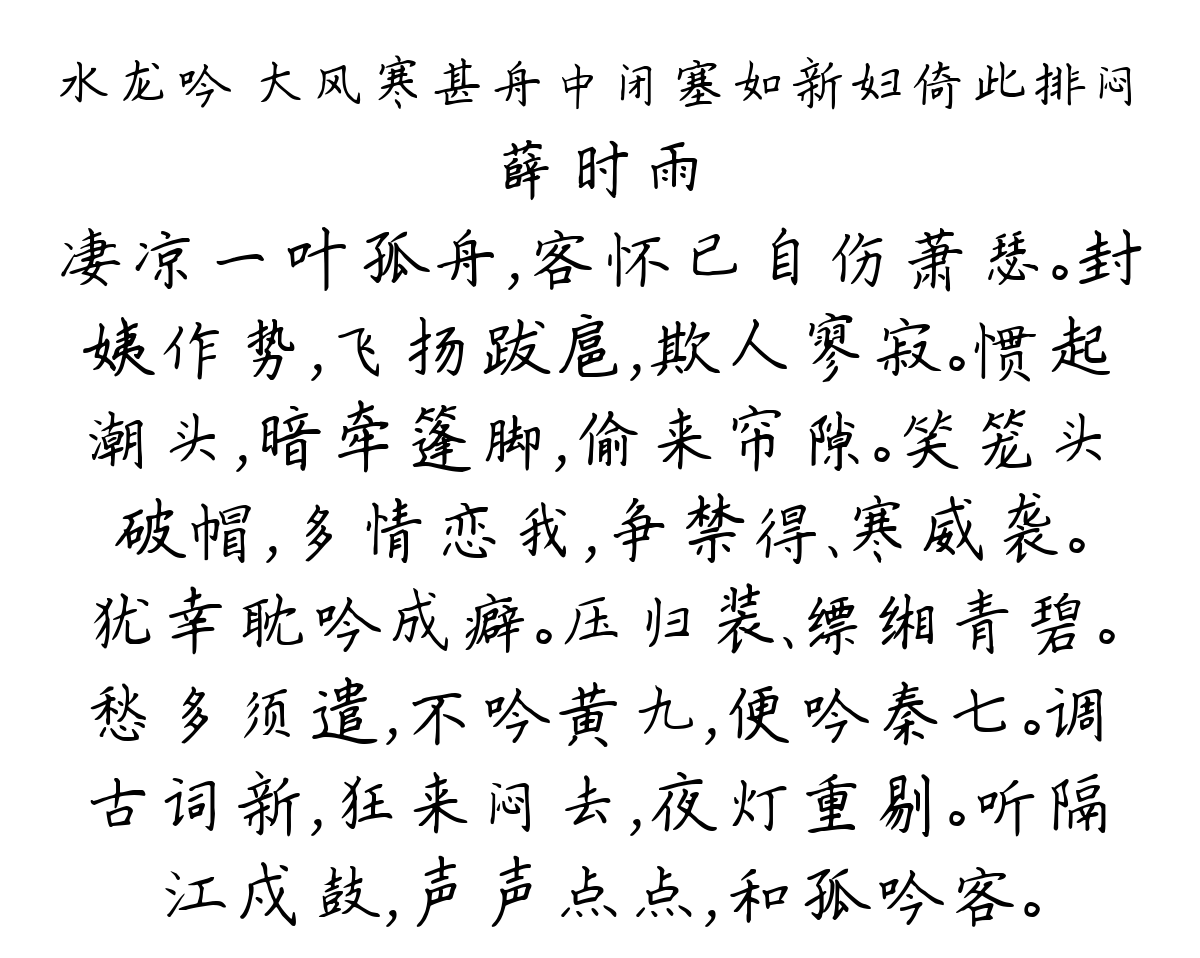 水龙吟 大风寒甚舟中闭塞如新妇倚此排闷
薛时雨
凄凉一叶孤舟,客怀已自伤萧瑟。封
姨作势,飞扬跋扈,欺人寥寂。惯起
潮头,暗牵篷脚,偷来帘隙。笑笼头
破帽,多情恋我,争禁得、寒威袭。
犹幸耽吟成癖。压归装、缥缃青碧。
愁多须遣,不吟黄九,便吟秦七。调
古词新,狂来闷去,夜灯重剔。听隔
江戍鼓,声声点点,和孤吟客。